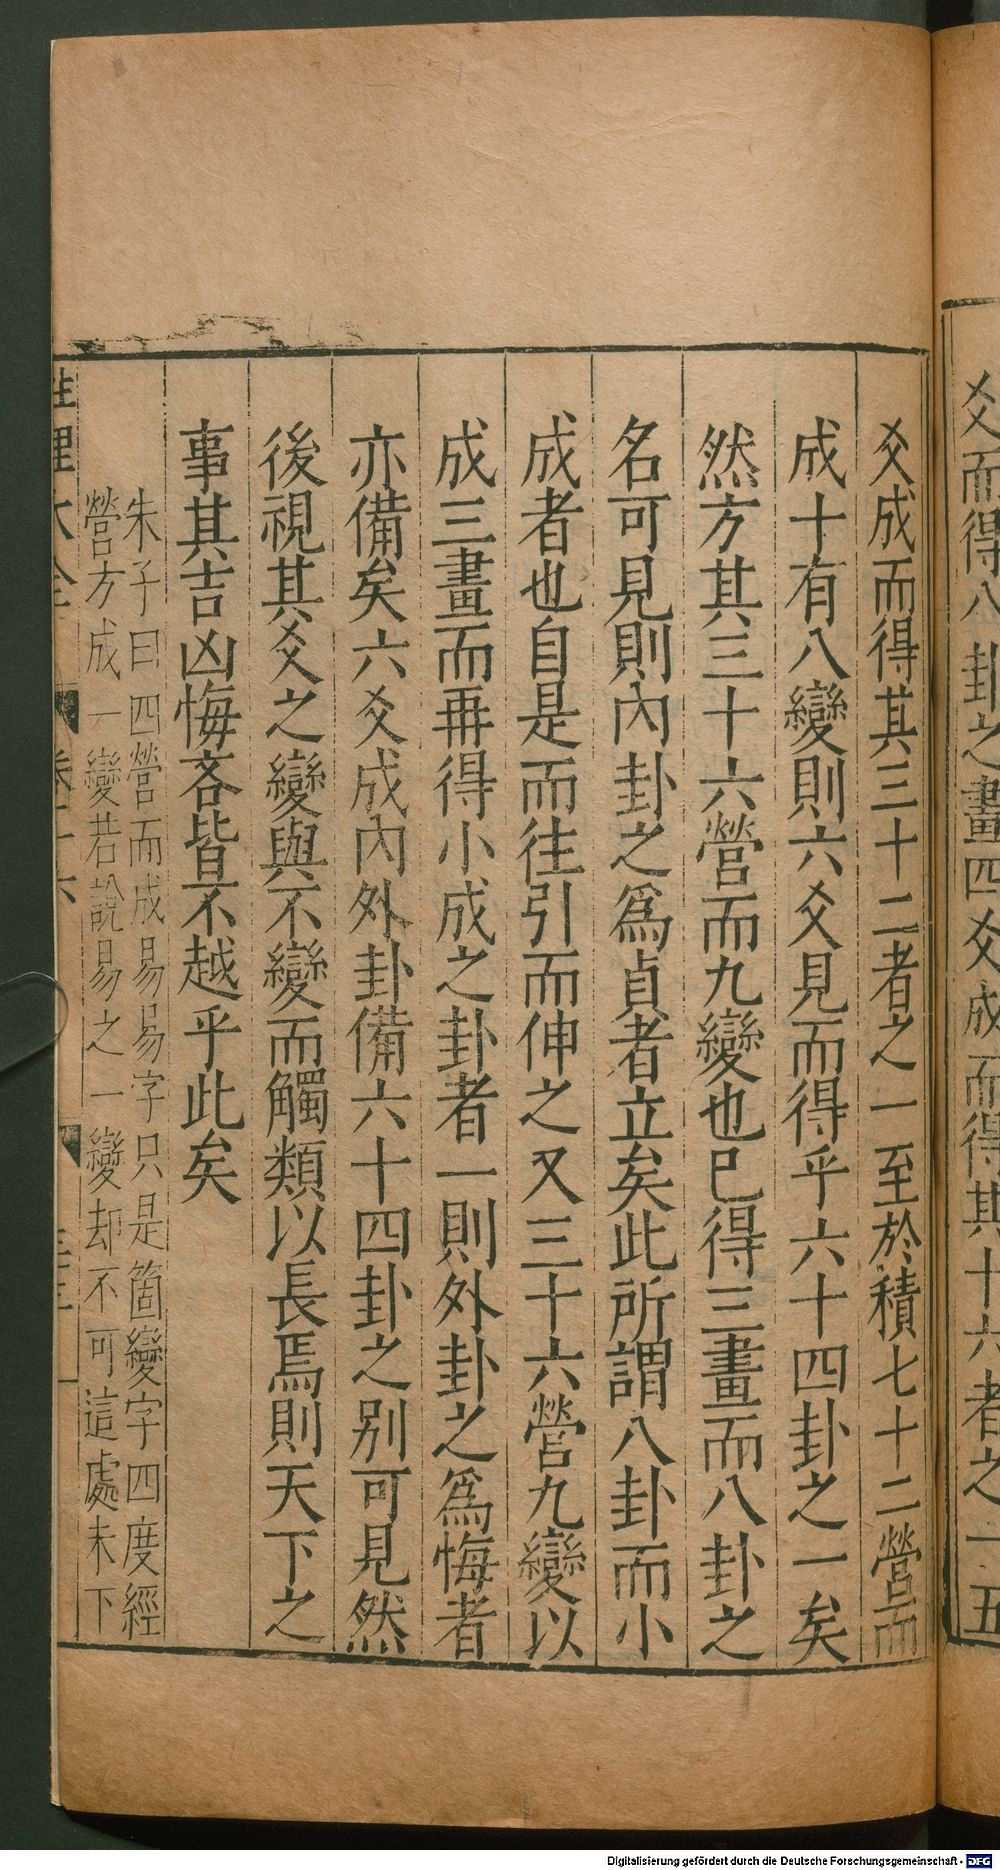 爻而得八卦之畫四爻成而得其十六者之一五
爻成而得其三十二者之一至於積七十二營而
成十有八變則六爻見而得乎六十四卦之一矣
然方其三十六營而九變也已得三畫而八卦之
名可見則內卦之為貞者立矣此所謂八卦而小
成者也自是而往引而伸之又三十六營九變以
成三畫而再得小成之卦者一則外卦之為悔者
亦備矣六爻成內外卦備六十四卦之別可見然
後視其爻之變與不變而觸類以長焉則天下之
事其吉凶悔吝皆不越乎此矣
朱子曰四營而成易易字只是箇變字四度經
營方成一變若說易之一變却不可這處未下
性理大全
卷十六
Digitalisierung gefördert durch die Deutsche Forschungsgemeinschaft - DFG